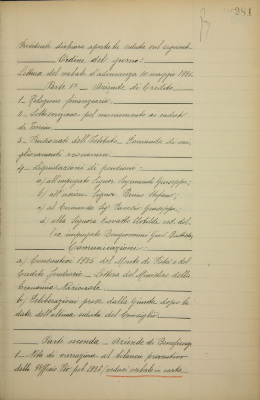 281
Presidente dichiara aperta la seduta sul seguente
Ordine del giorno:
Lettura del verbale d'adunanza 10 maggio 1926.
Parte 1ª - Azienda di Credito
1- Relazione finanziaria.
2- Sottoscrizione pel monumento ai caduti
di Torino
3- Funzionari dell'Istituto - Domande di
miglioramenti economici
4- Liquidazioni di pensioni:
a) all'impiegato Signor Giuseppe;
b) all'usciere Signor Stefano;
c) al Comm. Rag. Giuseppe;
d) alla Signora Clotilde ved. del
l'ex impiegato Giov. Battista.
Comunicazioni:
a) Consuntivi 1925 del Monte di Pietà e del
Credito Fondiario - Lettera del Ministero della
Economia Nazionale.
b) Deliberazioni prese dalla Giunta dopo la
data dell'ultima seduta del Consiglio.
Parte seconda - Azienda di Beneficenza
1- Nota di variazioni al bilancio preventivo
delle Opere Pie pel 1926 (vedasi verbale in carta